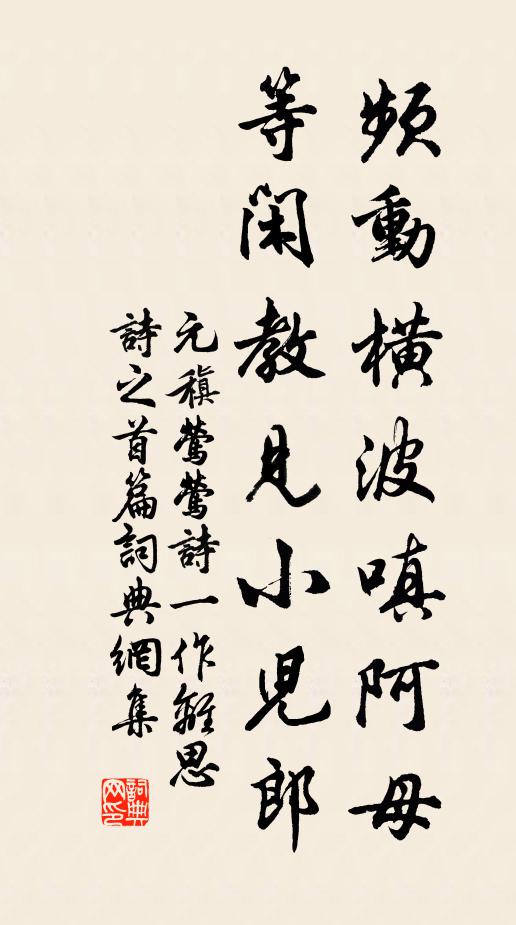 頻動橫波嗔阿母
等閑教見小兒郎
元稹鶯鶯詩一作離思
詩之首篇詞典網集
詞典网印